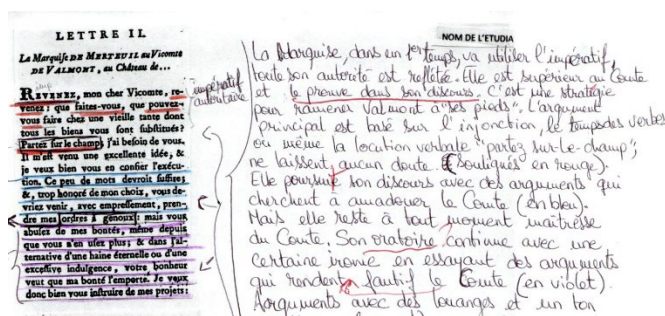 LETTRE II.
La Marquise DE MERTEUIL au Vicomte
DE VALMONT, au Château de...
REVENEZ, mon cher Vicomte, re-
venez : que faites-vous, que pouvez-
vous faire chez une vieille tante dont
tous les biens vous sont substitués ?
Partez sur le champ; j'ai besoin de vous.
Il m'est venu une excellente idée, &
je veux bien vous en confier l'exécu-
tion. Ce peu de mots devroit suffire;
&, trop honoré de mon choix, vous de-
vriez venir, avec empressement, pren-
dre mes ordres à genoux: mais vous
abusez de mes bontés, même depuis
que vous n'en usez plus; & dans l'al-
ternative d'une haine éternelle ou d'une
excessive indulgence, votre bonheur
veut que ma bonté l'emporte. Je veux
donc bien vous instruire de mes projets:
imp
impératif
autoritaire
NOM DE L'ETUDIA
La Marquise, dans un 1er temps, va utiliser l'impératif,
toute son autorité est reflétée. Elle est supérieur au Comte
et le preuve dans son discours. C'est une stratégie
pour ramener Valmont à "ses pieds". L'argument
principal est basé sur l'injonction, le temps des verbes
ou même la locution verbale "partez sur-le-champ";
ne laissent aucun doute. (souligués en rouge).
Elle poursuit son discours avec des arguments qui
cherchent à amadouer le Comte (en bleu).
Mais elle reste à tout moment maîtresse
du Comte. Son oratoire continue avec une
certaine ironie en essayant des arguments
qui rendent fautif le Comte (en violet).
Arguments avec des louanges et un ton